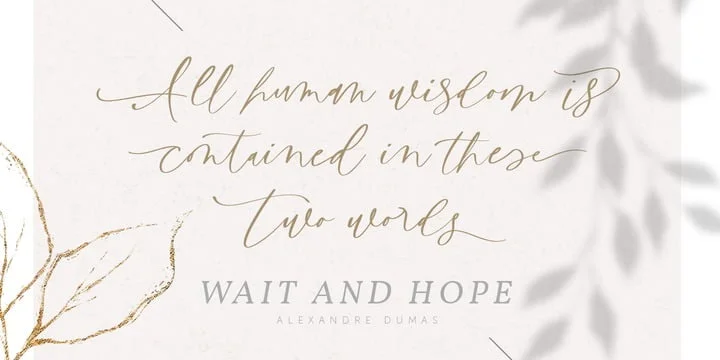 All human wisdom is
contained in these
two words
WAIT AND HOPE
ALEXANDRE DUMAS